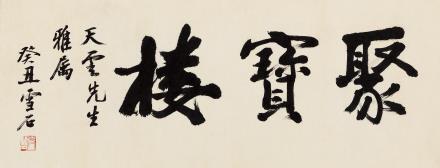 聚寶樓
天雲先生
雅属
癸丑雪石